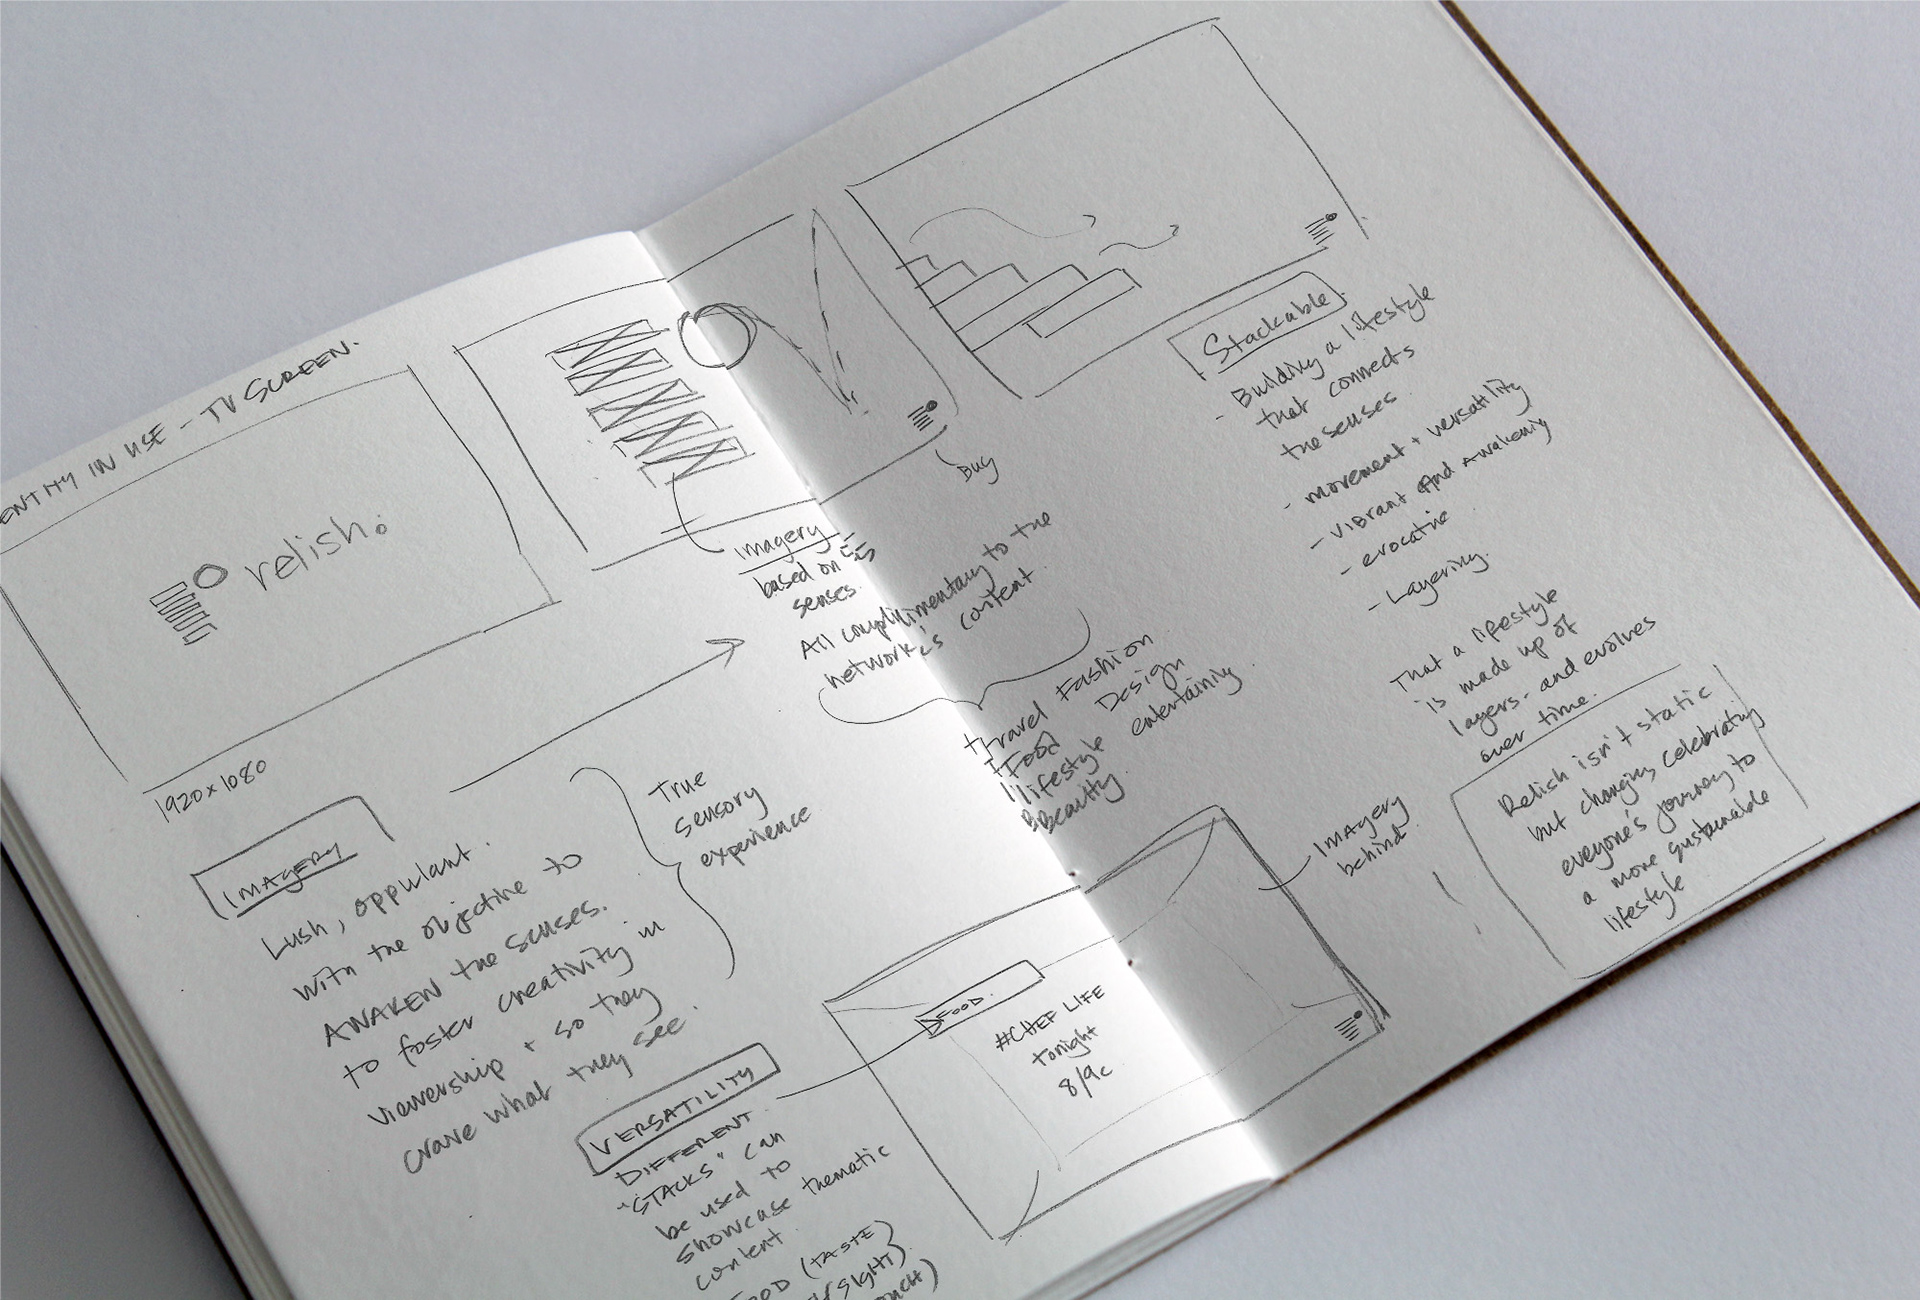 ENTITY IN USE - TV SCREEN.
relish.
1920 x 1080
IMAGERY
Lush, oppulant.
with the objective to
AWAKEN the senses.
to foster creativity in
viewership + so they
crave what they see.
True
sensory
experience
imagery
based on 5
senses.
All complimentary to the
network's content.
Travel Fashion
Food Design
lifestyle entertaining
Beauty
Bug
Stackable
- Building a lifestyle
that connects
the senses
- movement + versatility
- Vibrant And Awakening
- evocative
- Layering.
That a lifestyle
is made up of
layers - and evolves
over time.
Relish isn't static
but changing, celebrating
everyone's journey to
a more sustainable
lifestyle
IMAgery
behind
FOOD.
#CHEF LIFE
tonight
8/9c
VERSATILITY
DIFFERENT
"STACKS" can
be used to
showcase thematic
content
FOOD (TASTE)
(SIGHT)